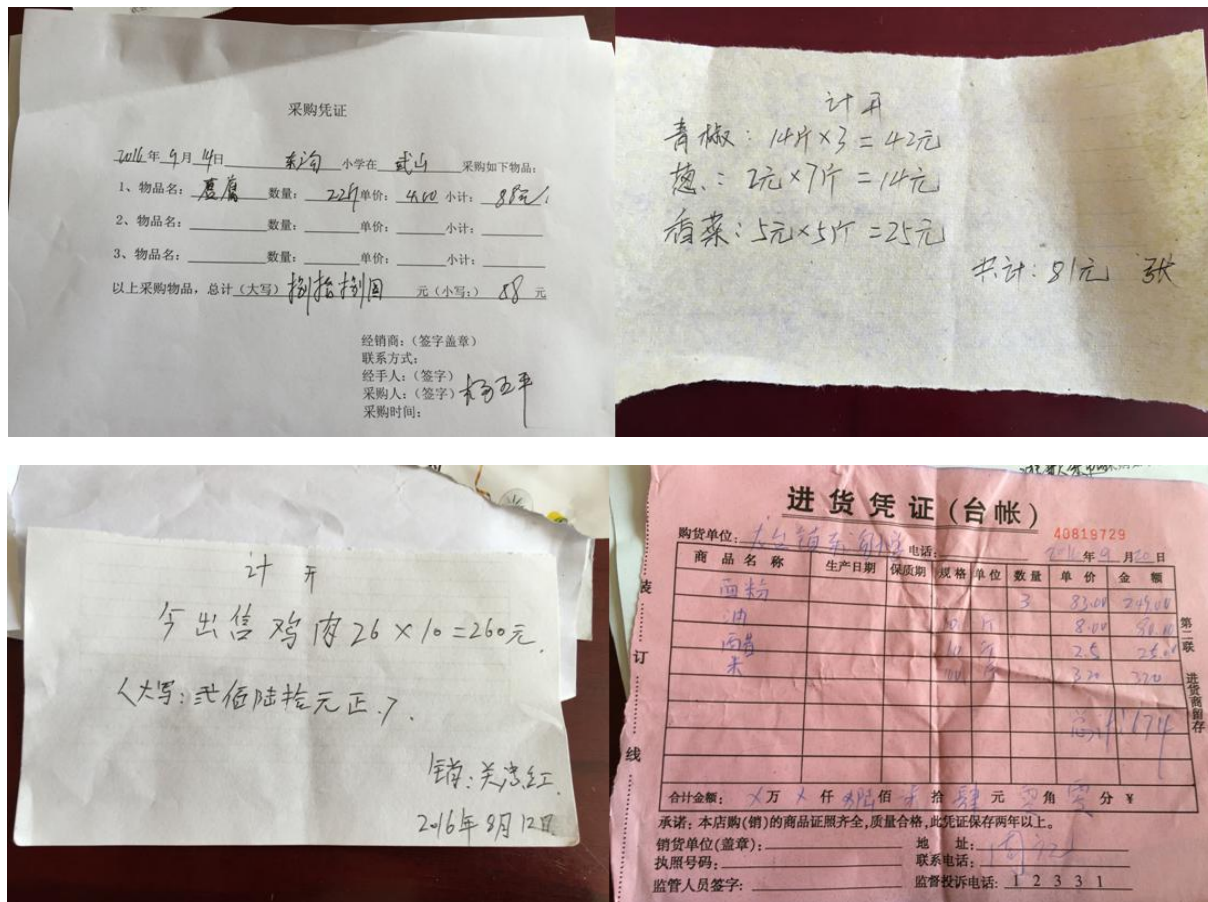 采购凭证
2016年9月14日 东沟 小学在 武山 采购如下物品:
1、物品名: 豆腐 数量: 22斤 单价: 4.00 小计: 88元
2、物品名: 数量: 单价: 小计:
3、物品名: 数量: 单价: 小计:
以上采购物品,总计(大写) 捌拾捌圆 元(小写:) 88 元
经销商:(签字盖章)
联系方式:
经手人:(签字)
采购人:(签字) 杨五平
采购时间:
计开
青椒: 14斤×3=42元
葱: 2元×7斤=14元
香菜: 5元×5斤=25元
共计: 81元 张
计开
今出信鸡肉26×10=260元.
(大写: 贰佰陆拾元正.).
销:
2016年8月12日
进货凭证(台帐)
40819729
购货单位: 电话: 2016年9月20日
商品名称 生产日期 保质期 规格 单位 数量 单价 金额
面粉 3 83.00 249.00
油 斤 8.00
醋 10 斤 2.5 25.0
米 斤 320 320
总计 674
合计金额: ×万×仟陆佰柒拾肆元零角零分¥
承诺:本店购(销)的商品证照齐全,质量合格,此凭证保存两年以上。
销货单位(盖章): 地址:
执照号码: 联系电话:
监管人员签字: 监督投诉电话: 12331
装订线
第二联
进货商留存